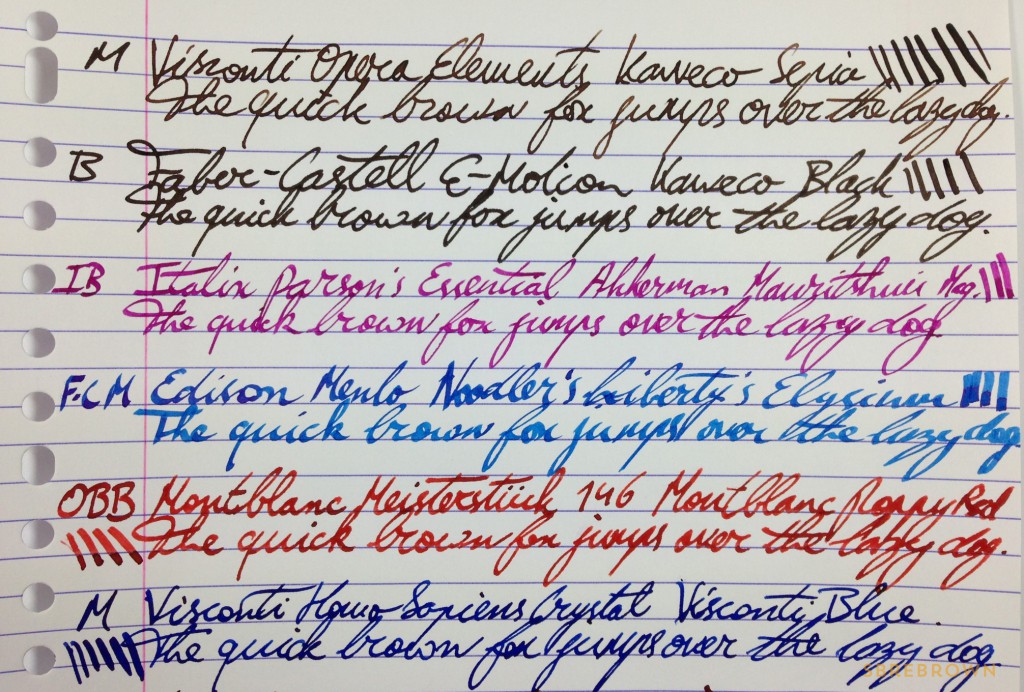 M Visconti Opera Elements Kaweco Sepia
The quick brown fox jumps over the lazy dog.
B Faber-Castell E-Motion Kaweco Black
The quick brown fox jumps over the lazy dog.
IB Italix Parson's Essential Akkerman Mauritshuis Mag.
The quick brown fox jumps over the lazy dog
F-CM Edison Menlo Noodler's Liberty's Elysium
The quick brown fox jumps over the lazy dog.
OBB Montblanc Meisterstück 146 Montblanc Poppy Red
The quick brown fox jumps over the lazy dog.
M Visconti Homo Sapiens Crystal Visconti Blue.
The quick brown fox jumps over the lazy dog
SBREBROWN